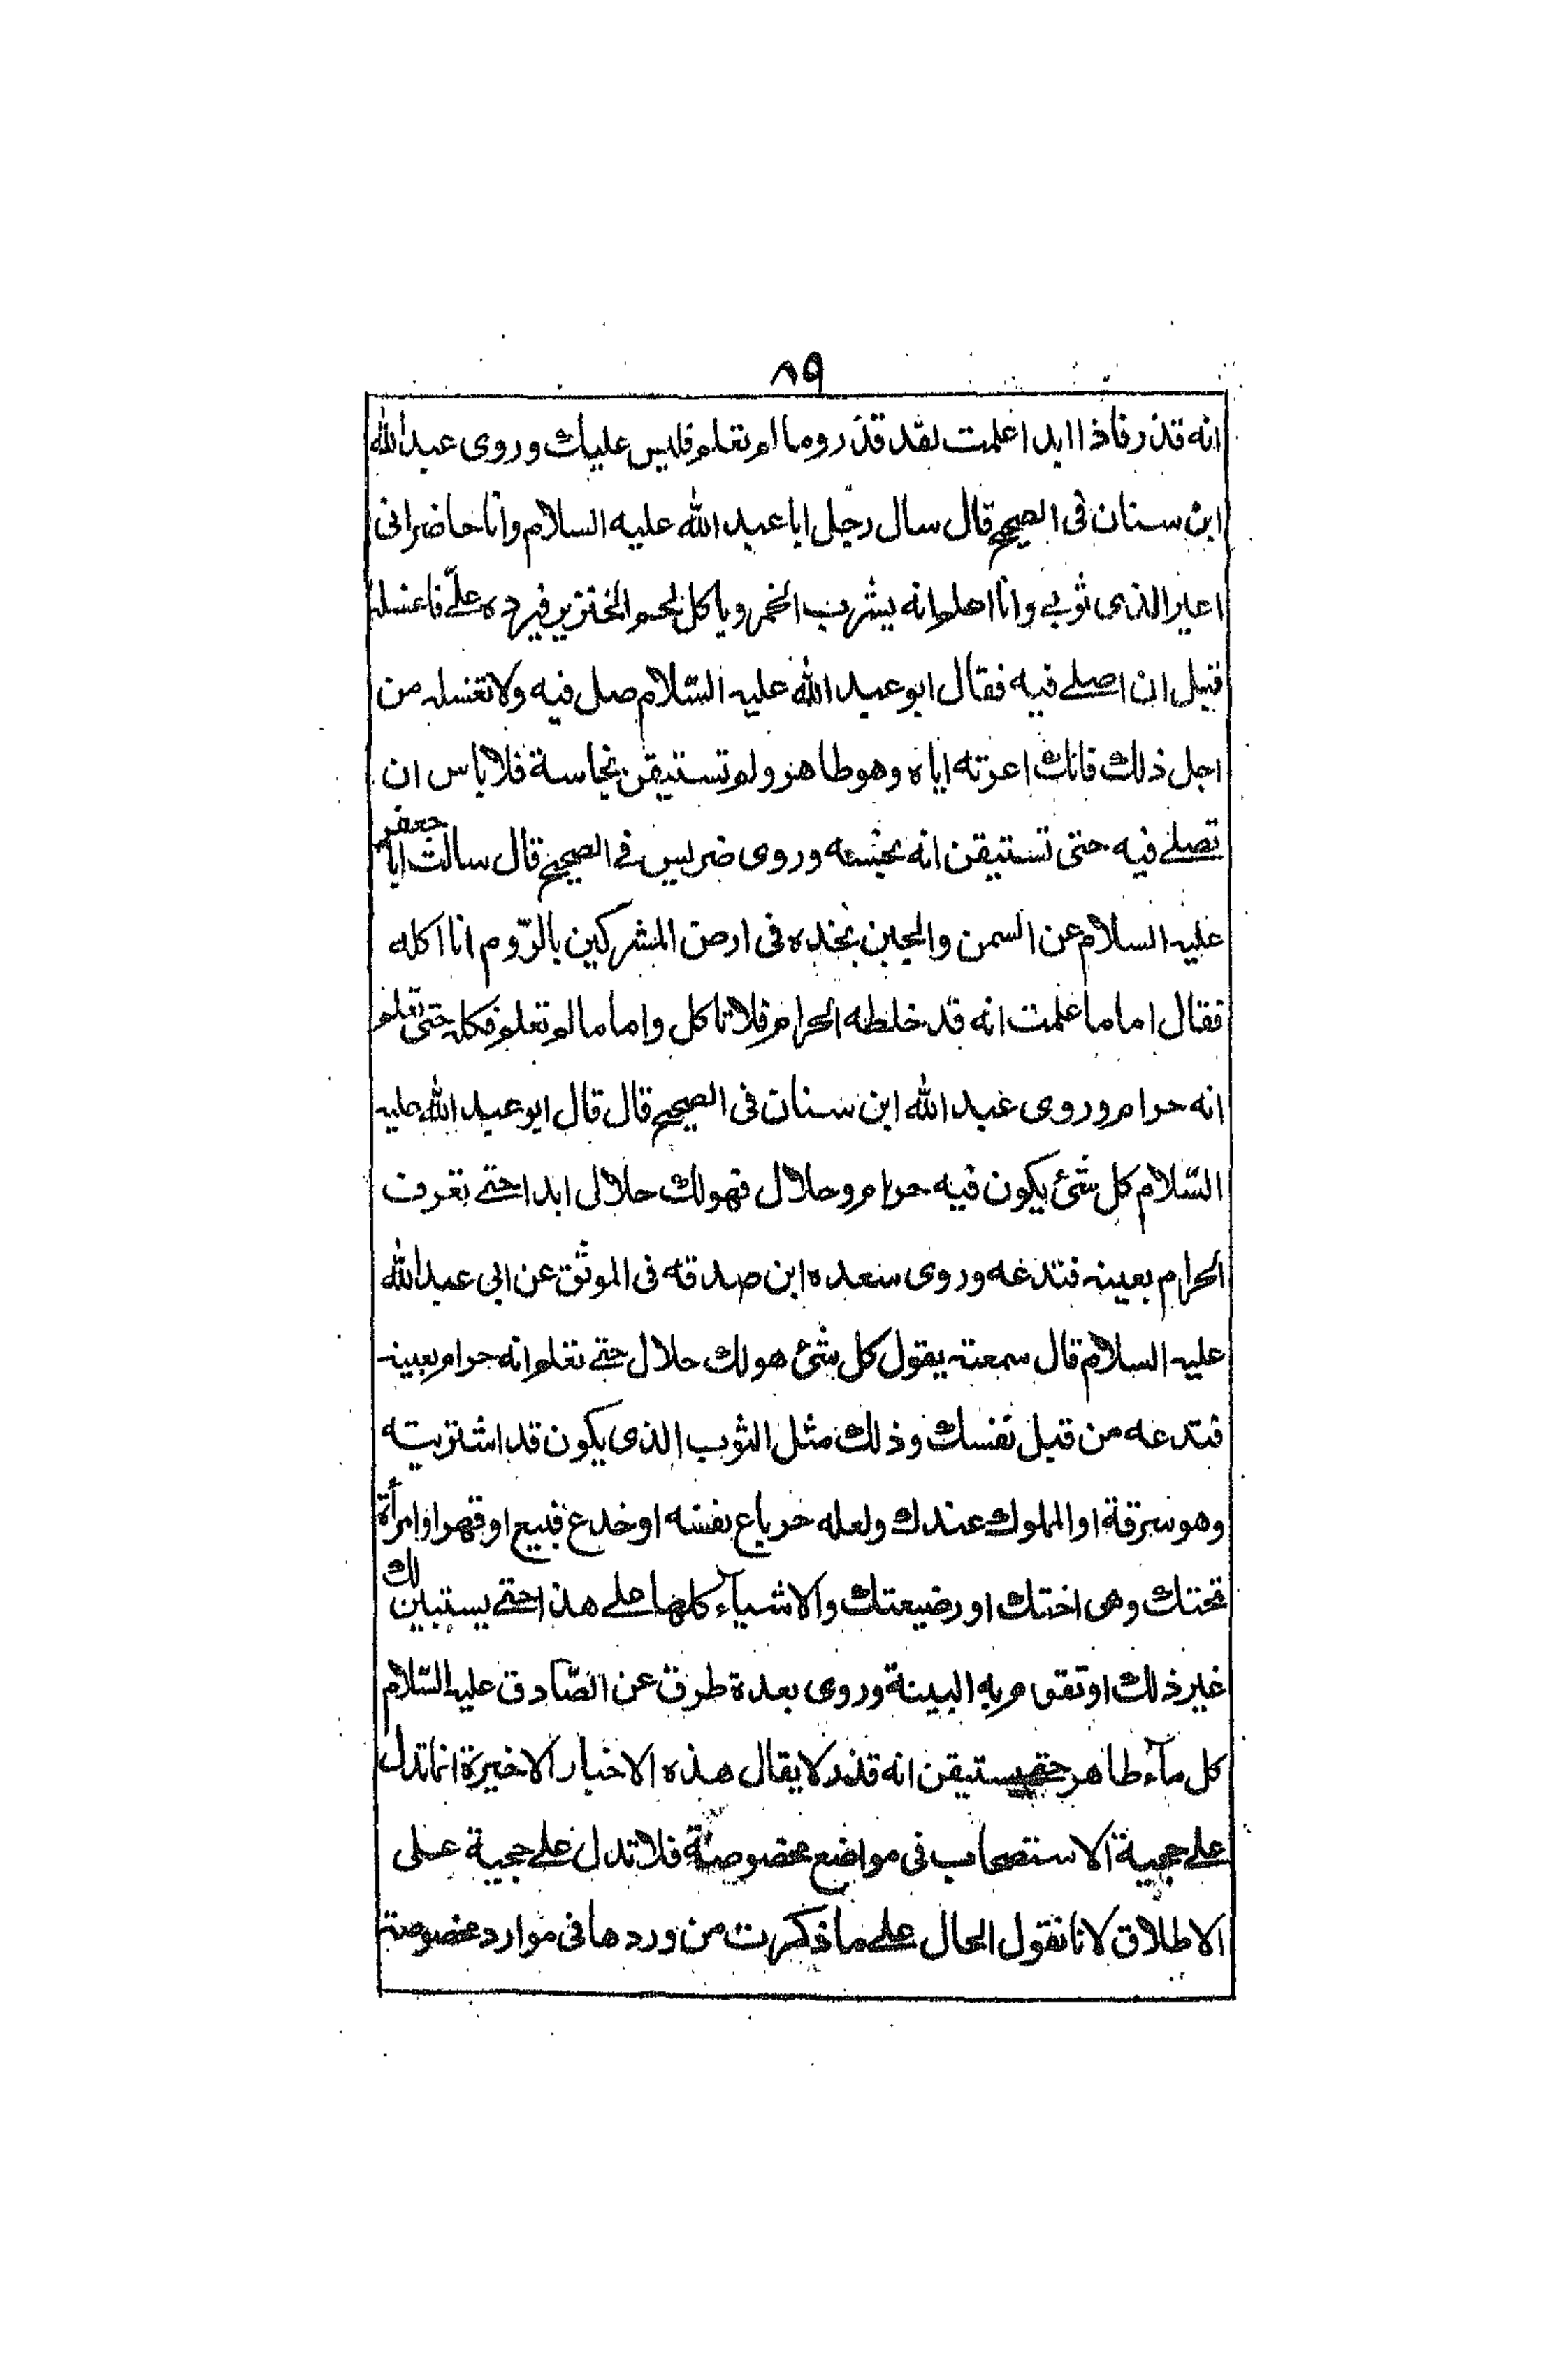 ٨٩
انه قذر فاذا ابدا علمت لقد قذر وما لم تعلم فليس عليك وروى عبد الله
ابن سنان فى الصحيح قال سال رجل ابا عبد الله عليه السلام وانا حاضر انى
اعير الذمى ثوبي وانا اعلم انه يشرب الخمر وياكل لحم الخنزير فيرده علىّ فاغسله
قبل ان اصلے فيه فقال ابو عبد الله عليه السّلام صل فيه ولا تغسله من
اجل ذلك فانك اعرته اياه وهو طاهر ولم تستيقن نجاسة فلا باس ان
تصلے فيه حتى تستيقن انه نجسه وروى ضريس فے الصحيح قال سالت ابا جعفر
عليه السلام عن السمن والجبن نجده فى ارض المشركين بالرّوم اناكله
فقال اما ما علمت انه قد خلطه الحرام فلا تاكل واما ما لم تعلم فكله حتى تعلم
انه حرام وروى عبد الله ابن سنان فى الصحيح قال قال ابو عبد الله عليه
السّلام كل شئ يكون فيه حرام وحلال فهو لك حلال ابدا حتے تعرف
الحرام بعينه فتدعه وروى سعده ابن صدقه فى الموثق عن ابى عبد الله
عليه السلام قال سمعته يقول كل شئ هو لك حلال حتے تعلم انه حرام بعينه
فتدعه من قبل نفسك وذلك مثل الثوب الذى يكون قد اشتريته
وهو سرقة او المملوك عندك ولعله حر باع نفسه او خدع فبيع او قهر او امرأة
تحتك وهى اختك او رضيعتك والاشيآء كلها علے هذا حتے يستبين لك
غير ذلك او تقوم به البينة وروى بعدة طرق عن الصّادق عليه السّلام
كل مآء طاهر حتے يستيقن انه قذر لا يقال هذه الاخبار الاخيرة انما تدل
علے حجية الاستصحاب فى مواضع مخصوصة فلا تدل علے حجية على
الاطلاق لانا نقول الحال علے ما ذكرت من وردها فى موارد مخصوصة